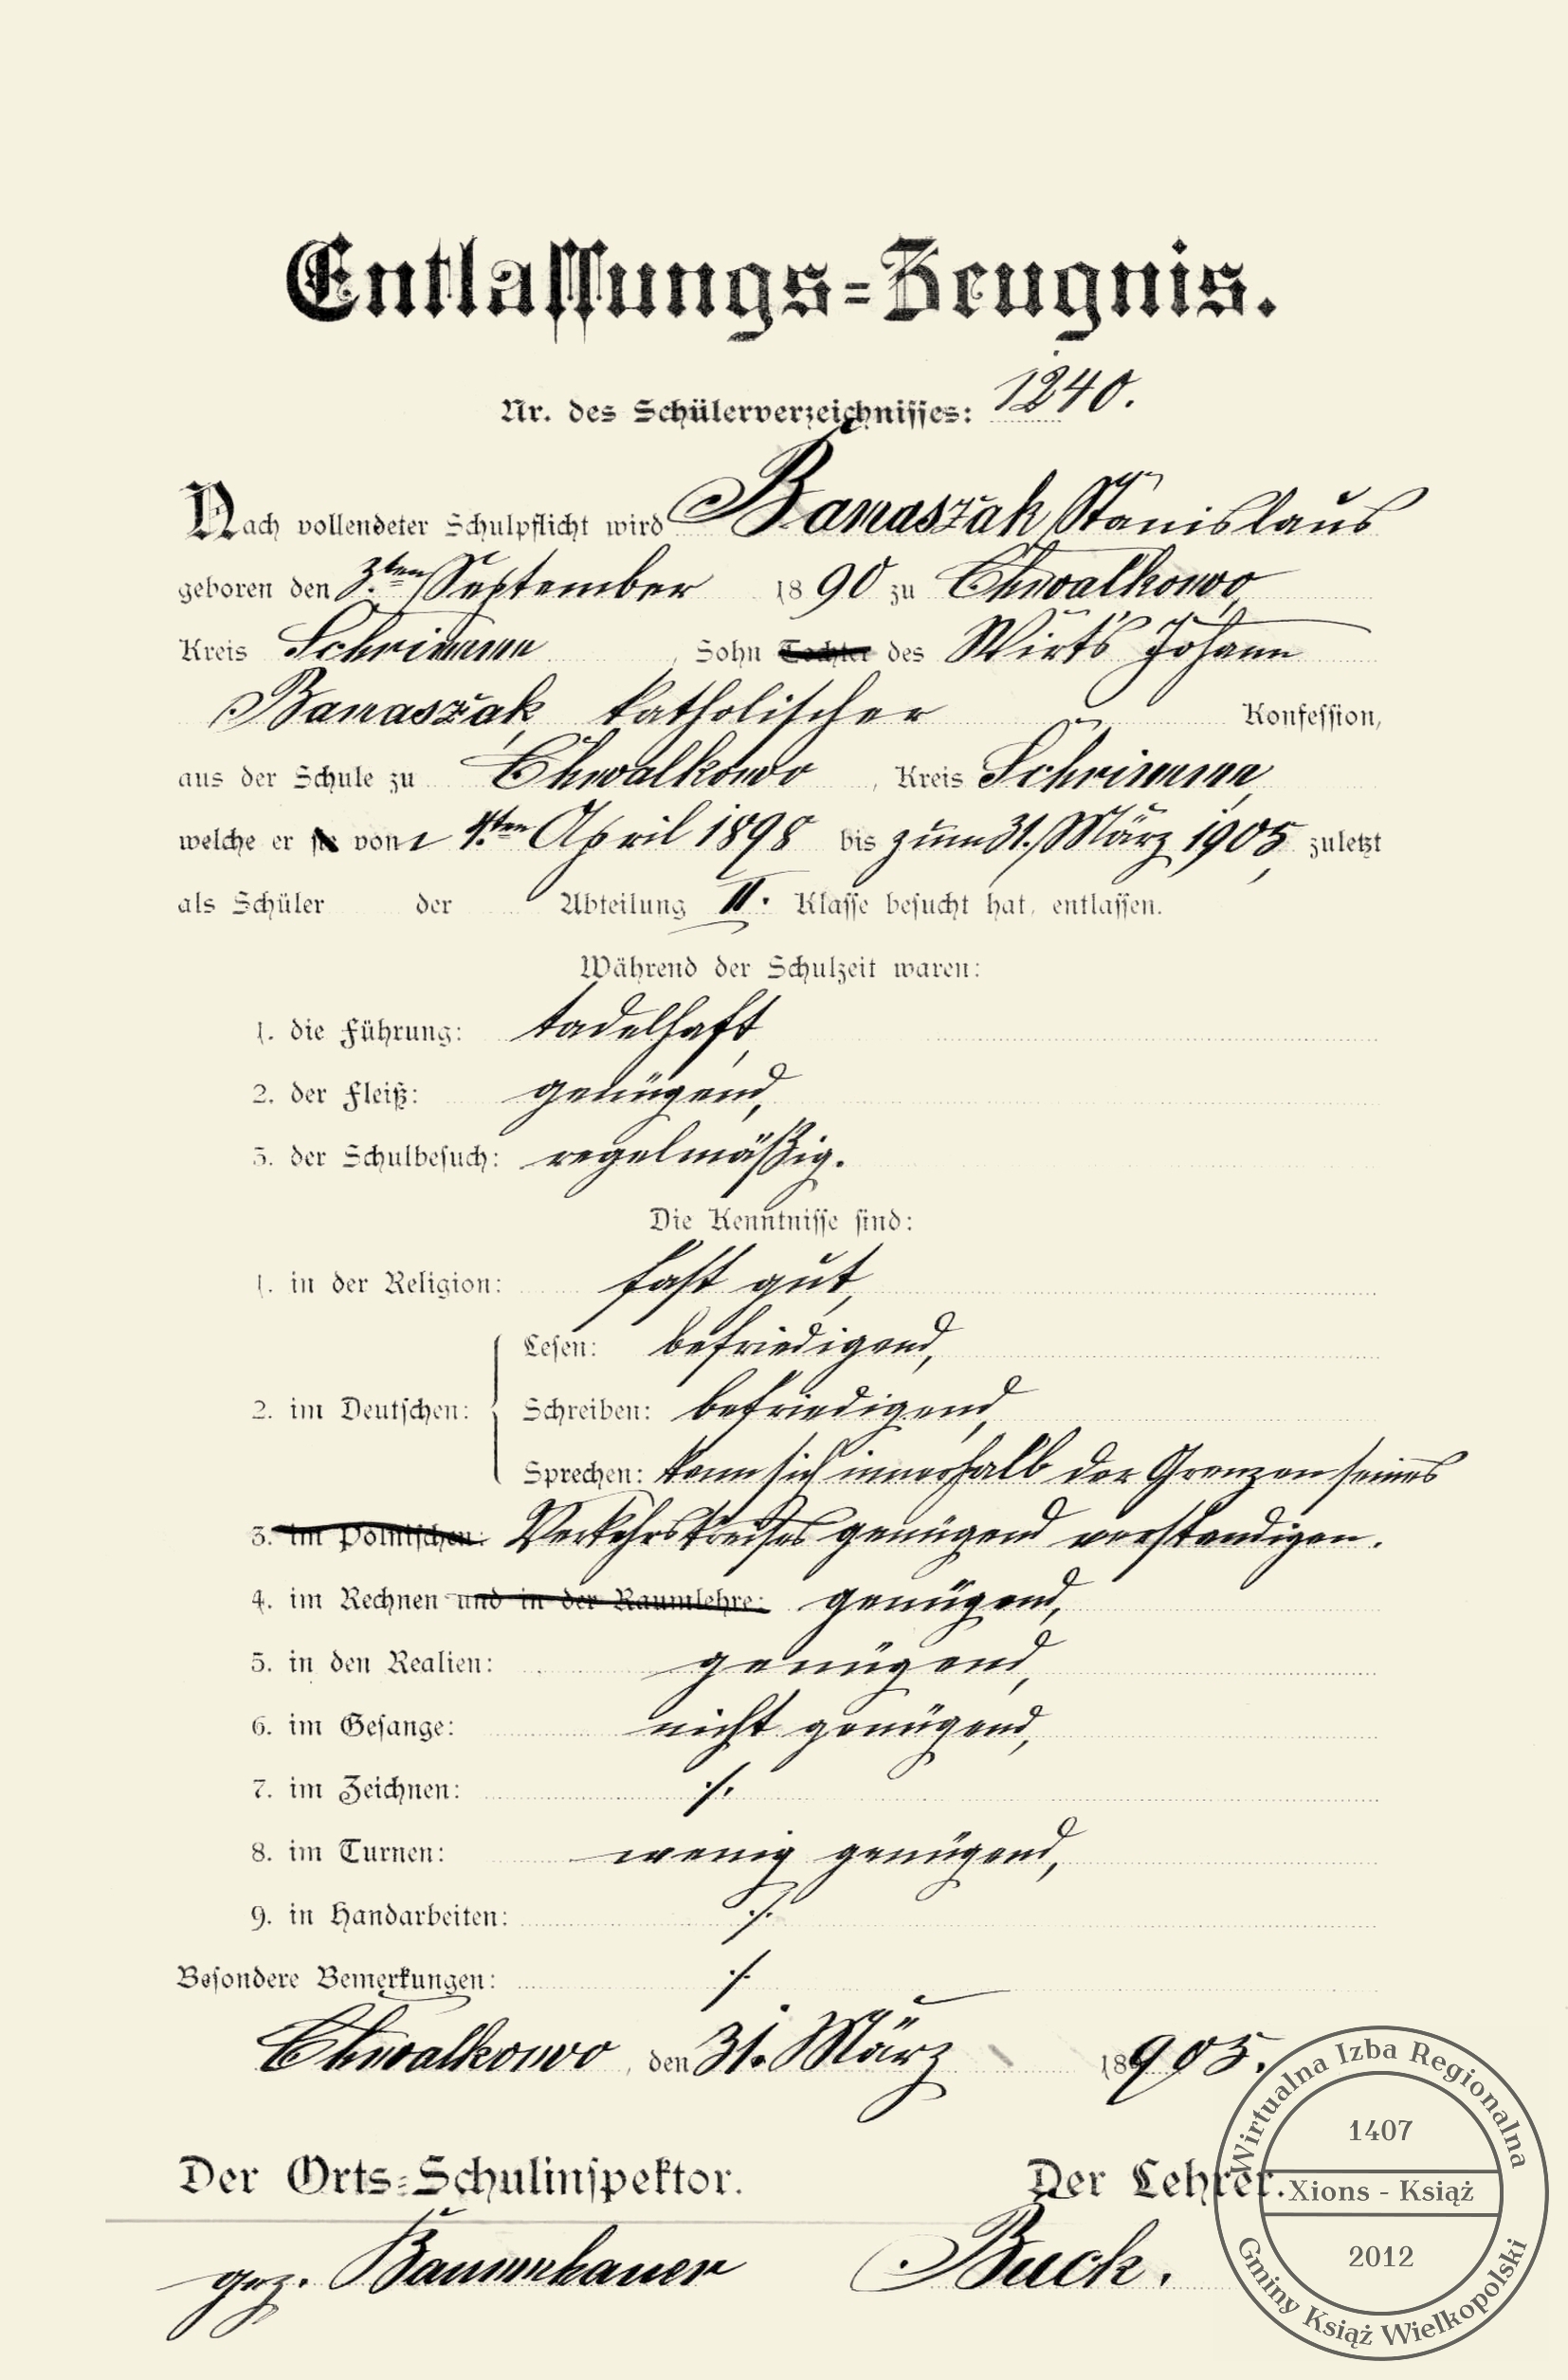 Entlassungs-Zeugnis.
Nr. des Schülerverzeichnisses: 1240.
Nach vollendeter Schulpflicht wird Banaszak Stanislaus
geboren den 3.ten September 1890 zu Chwalkowo,
Kreis Schrimm, Sohn Tochter des Wirts Johann
Banaszak, katholischer Konfession,
aus der Schule zu Chwalkowo, Kreis Schrimm,
welche er sie vom 1.ten April 1898 bis zum 31. März 1905, zuletzt
als Schüler der Abteilung II. Klasse besucht hat, entlassen.
Während der Schulzeit waren:
1. die Führung: tadelhaft,
2. der Fleiß: genügend,
3. der Schulbesuch: regelmäßig.
Die Kenntnisse sind:
1. in der Religion: fast gut,
Lesen: befriedigend,
2. im Deutschen: Schreiben: befriedigend,
Sprechen: kann sich innerhalb der Grenzen seines
3. im Polnischen: Verkehrskreises genügend verständigen.
4. im Rechnen und in der Raumlehre: genügend,
5. in den Realien: genügend,
6. im Gesange: nicht genügend,
7. im Zeichnen: ./.
8. im Turnen: wenig genügend,
9. in Handarbeiten: ./.
Besondere Bemerkungen: ./.
Chwalkowo, den 31. März 18905.
Der Orts-Schulinspektor. Der Lehrer.
gez. Baumhauer Buck.
Wirtualna Izba Regionalna
1407
Xions - Książ
2012
Gminy Książ Wielkopolski